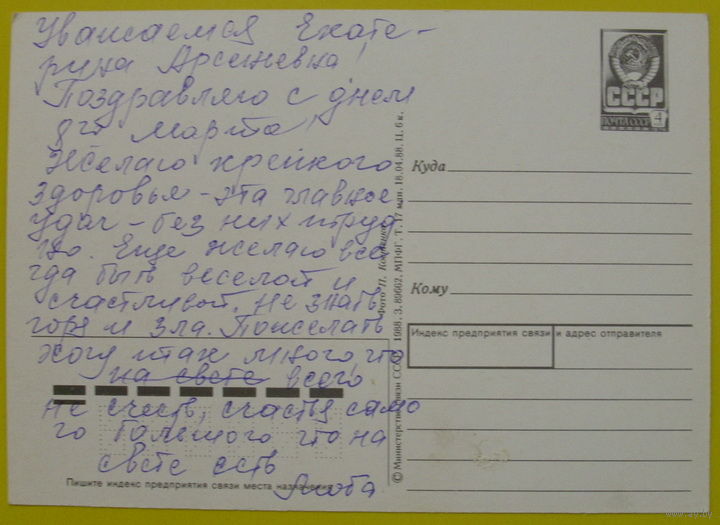 Уважаемся Екате-
рина Арсеневна!
Поздравляю с днем
8го марта!
Желаю крепкого
здоровья - эта главное
Удач - без них труд
но. Еще желаю все
гда быть веселой и
счастливой, не знать
горя и зла. Пожелать
хочу итак много, что
на свете всего
не счесть, счастья само
го большого что на
свете есть
Люба
СССР
ПОЧТА СССР 4
Куда
Кому
Индекс предприятия связи и адрес отправителя
Пишите индекс предприятия связи места назначения
© Министерство связи СССР 1988. З. 89662. МПФГ. Т. 17 млн. 18.04.88. Ц. 6 к.
Фото П.